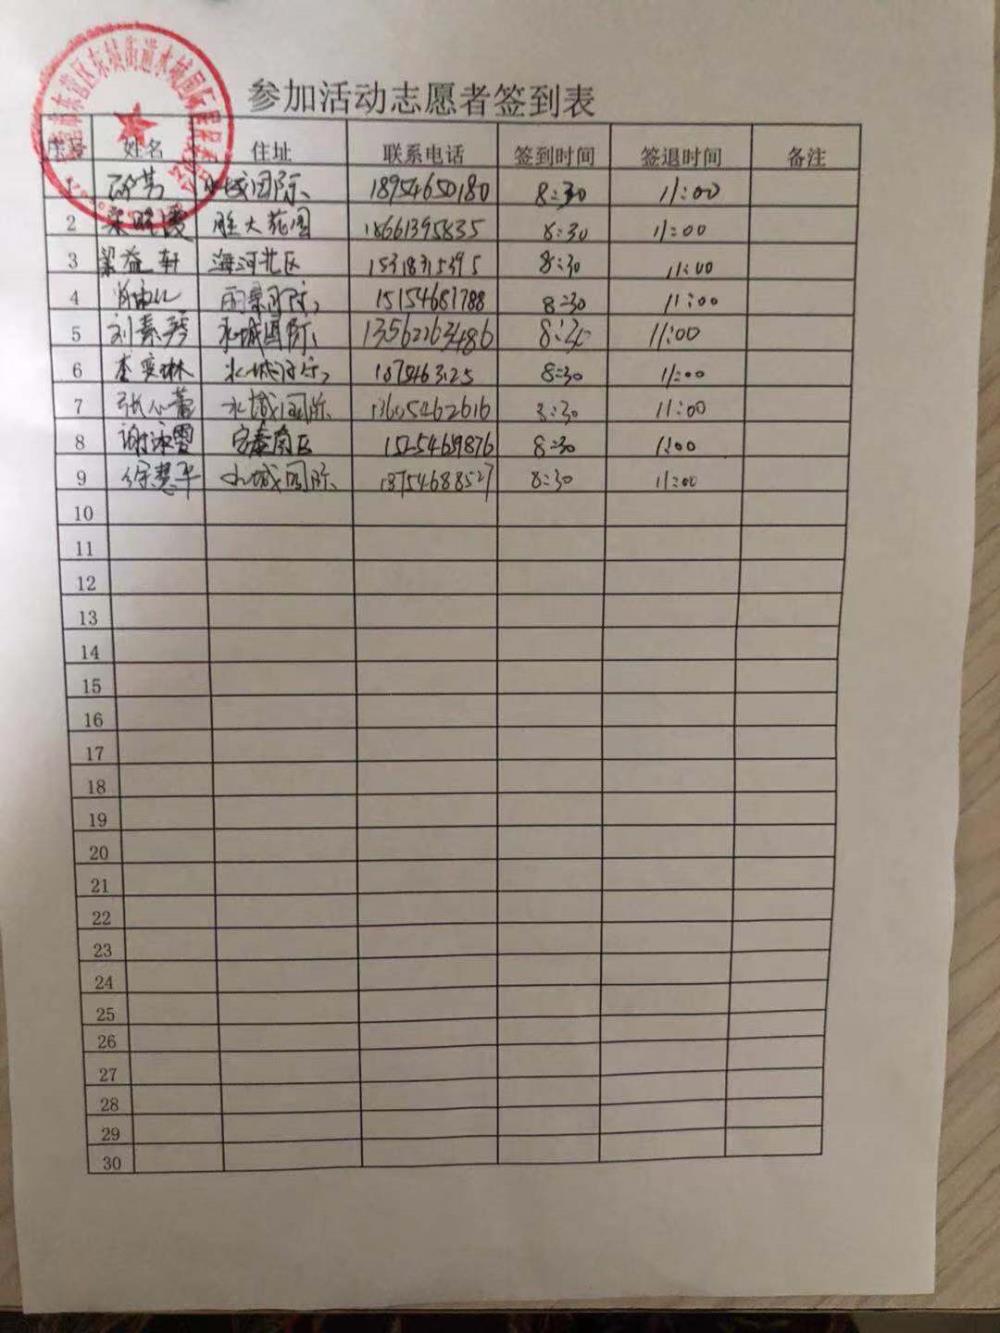 参加活动志愿者签到表
序号 姓名 住址 联系电话 签到时间 签退时间 备注
1 水城国际 18954650180 8:30 11:00
2 胜大花园 18661395835 8:30 11:00
3 梁益轩 海河北区 15318315395 8:30 11:00
4 15154681788 8:30 11:00
5 刘素琴 水城国际 13562263486 8:30 11:00
6 李奕琳 水城国际 8:30 11:00
7 张心蕾 水城国际 13605462616 8:30 11:00
8 谢淑雪 安泰南区 8:30 11:00
9 徐慧平 水城国际 18754688527 8:30 11:00
10
11
12
13
14
15
16
17
18
19
20
21
22
23
24
25
26
27
28
29
30